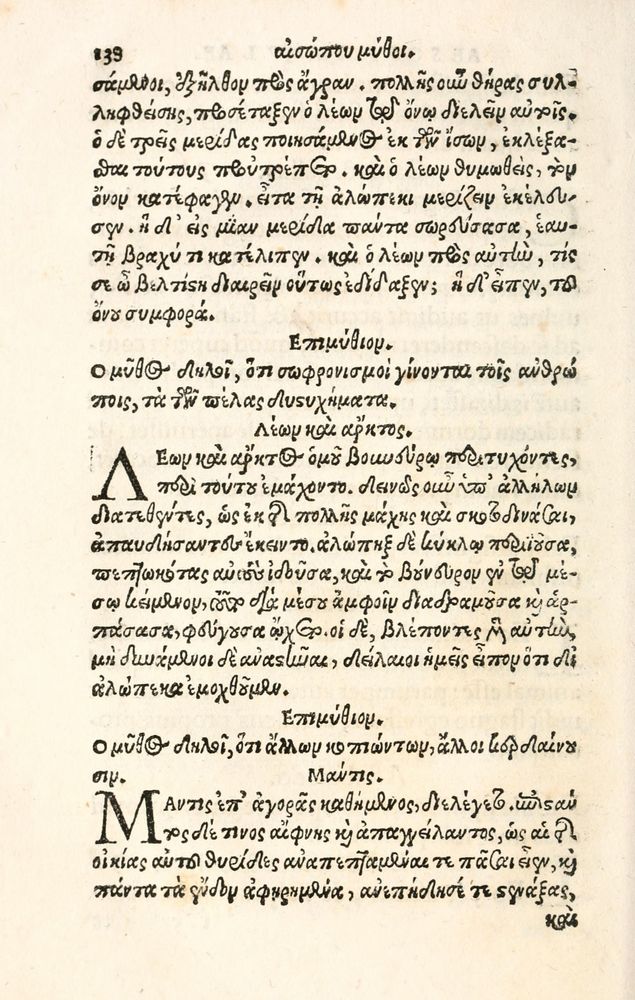 138 αἰσώπου μύθοι.
σάμενοι, ἐξῆλθον πρὸς ἄγραν. πολλῆς οὖν θήρας συλ-
ληφθείσης, προσέταξεν ὁ λέων τῷ ὄνῳ διελεῖν αὐτοῖς.
ὁ δὲ τρεῖς μερίδας ποιησάμενος ἐκ τῶν ἴσων, ἐκλέξα-
σθαι τούτους προὔτρεπετο. καὶ ὁ λέων θυμωθεὶς, τὸν
ὄνον κατέφαγεν. εἶτα τῇ ἀλώπεκι μερίζειν ἐκέλευ-
σεν. ἡ δ' εἰς μίαν μερίδα πάντα σωρεύσασα, ἑαυ-
τῇ βραχύ τι κατέλιπεν. καὶ ὁ λέων πρὸς αὐτὴν, τίς
σε ὦ βελτίστη διαιρεῖν οὕτως ἐδίδαξεν; ἡ δ' εἶπεν, τοῦ
ὄνου συμφορά.
Επιμύθιον.
Ο μῦθος δηλοῖ, ὅτι σωφρονισμοὶ γίνονται τοῖς ἀνθρώ
ποις, τὰ τῶν πέλας δυστυχήματα.
Λέων καὶ ἄρκτος.
ΛΕων καὶ ἄρκτος ὁμοῦ βουνεύρῳ περιτυχόντες,
περὶ τούτου ἐμάχοντο. δεινῶς οὖν ὑπ' ἀλλήλων
διατεθέντες, ὡς ἐκ τῆς πολλῆς μάχης καὶ σκοτοδινάσαι,
ἀπαυδήσαντες ἔκειντο. ἀλώπηξ δὲ κύκλῳ περιϊοῦσα,
πεπτωκότας αὐτοὺς ἰδοῦσα, καὶ τὸ βούνευρον ἐν τῷ μέ-
σῳ κείμενον, τοῦτο διὰ μέσου ἀμφοῖν διαδραμοῦσα καὶ ἁρ-
πάσασα, φεύγουσα ᾤχετο. οἱ δὲ, βλέποντες μὲν αὐτὴν,
μὴ δυνάμενοι δὲ ἀναστῆναι, δείλαιοι ἡμεῖς εἶπον ὅτι δι
ἀλώπεκα ἐμοχθοῦμεν.
Επιμύθιον.
Ο μῦθος δηλοῖ, ὅτι ἄλλων κοπιώντων, ἄλλοι κερδαίνου
σιν. Μάντις.
ΜΑντις ἐπ' ἀγορᾶς καθήμενος, διελέγετο. ἐπιστάν
τος δέ τινος αἴφνης καὶ ἀπαγγείλαντος, ὡς αἱ τῆς
οἰκίας αὐτοῦ θυρίδες ἀναπεπταμέναι τε πᾶσαι εἶεν, καὶ
πάντα τὰ ἔνδον ἀφῃρημένα, ἀνεπήδησέ τε στενάξας,
καὶ